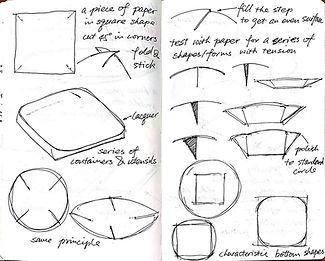 a piece of paper
in square shape
cut 45° in corners
fold &
stick
lacquer
series of
containers & utensils
same principle
fill the step
to get an even surface
test with paper for a series of
shapes/forms with tension
polish
to standard
circle
characteristic bottom shapes